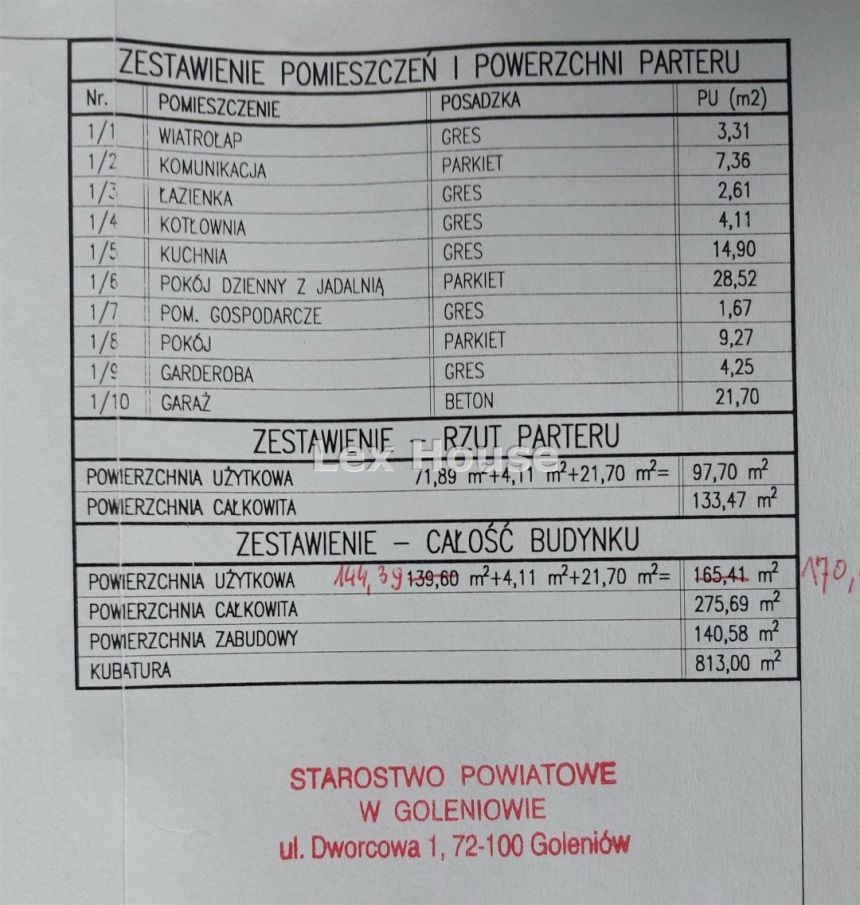 ZESTAWIENIE POMIESZCZEŃ I POWERZCHNI PARTERU
Nr. POMIESZCZENIE POSADZKA PU (m2)
1/1 WIATROŁAP GRES 3,31
1/2 KOMUNIKACJA PARKIET 7,36
1/3 ŁAZIENKA GRES 2,61
1/4 KOTŁOWNIA GRES 4,11
1/5 KUCHNIA GRES 14,90
1/6 POKÓJ DZIENNY Z JADALNIĄ PARKIET 28,52
1/7 POM. GOSPODARCZE GRES 1,67
1/8 POKÓJ PARKIET 9,27
1/9 GARDEROBA GRES 4,25
1/10 GARAŻ BETON 21,70
ZESTAWIENIE – RZUT PARTERU
Lex House
POWIERZCHNIA UŻYTKOWA 71,89 m²+4,11 m²+21,70 m²= 97,70 m²
POWIERZCHNIA CAŁKOWITA 133,47 m²
ZESTAWIENIE – CAŁOŚĆ BUDYNKU
POWIERZCHNIA UŻYTKOWA 144,39 139,60 m²+4,11 m²+21,70 m²= 165,41 m² 170,
POWIERZCHNIA CAŁKOWITA 275,69 m²
POWIERZCHNIA ZABUDOWY 140,58 m²
KUBATURA 813,00 m²
STAROSTWO POWIATOWE
W GOLENIOWIE
ul. Dworcowa 1, 72-100 Goleniów